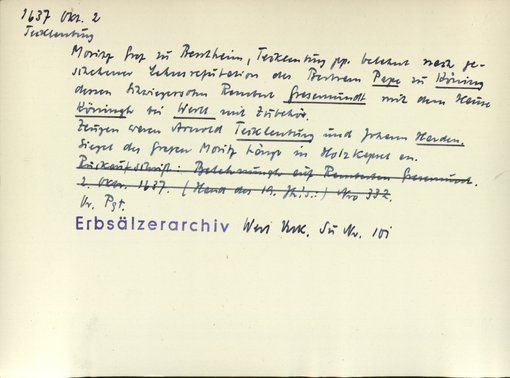 1637 Okt. 2
Tecklenburg
Moritz Graf zu Bentheim, Tecklenburg pp. belehnt nach ge-
schehener Lehnsresutation des Bertram Pape zu Köning
dessen Schwiegersohn Rembert Gresemundt mit dem Hause
Köningh bei Werll mit Zubehör.
Zeugen waren Arnold Tecklenburg und Johann Herden.
Siegel des Grafen Moritz hängt in Holzkapsel an.
Rückaufschrift: Belehnungh auf Remberten Gresemund.
2. Oktr. 1637. (Hand des 19. Jh.s.:) Nro 332.
Or. Pgt.
Erbsälzerarchiv Werl Urk. Sü Nr. 101